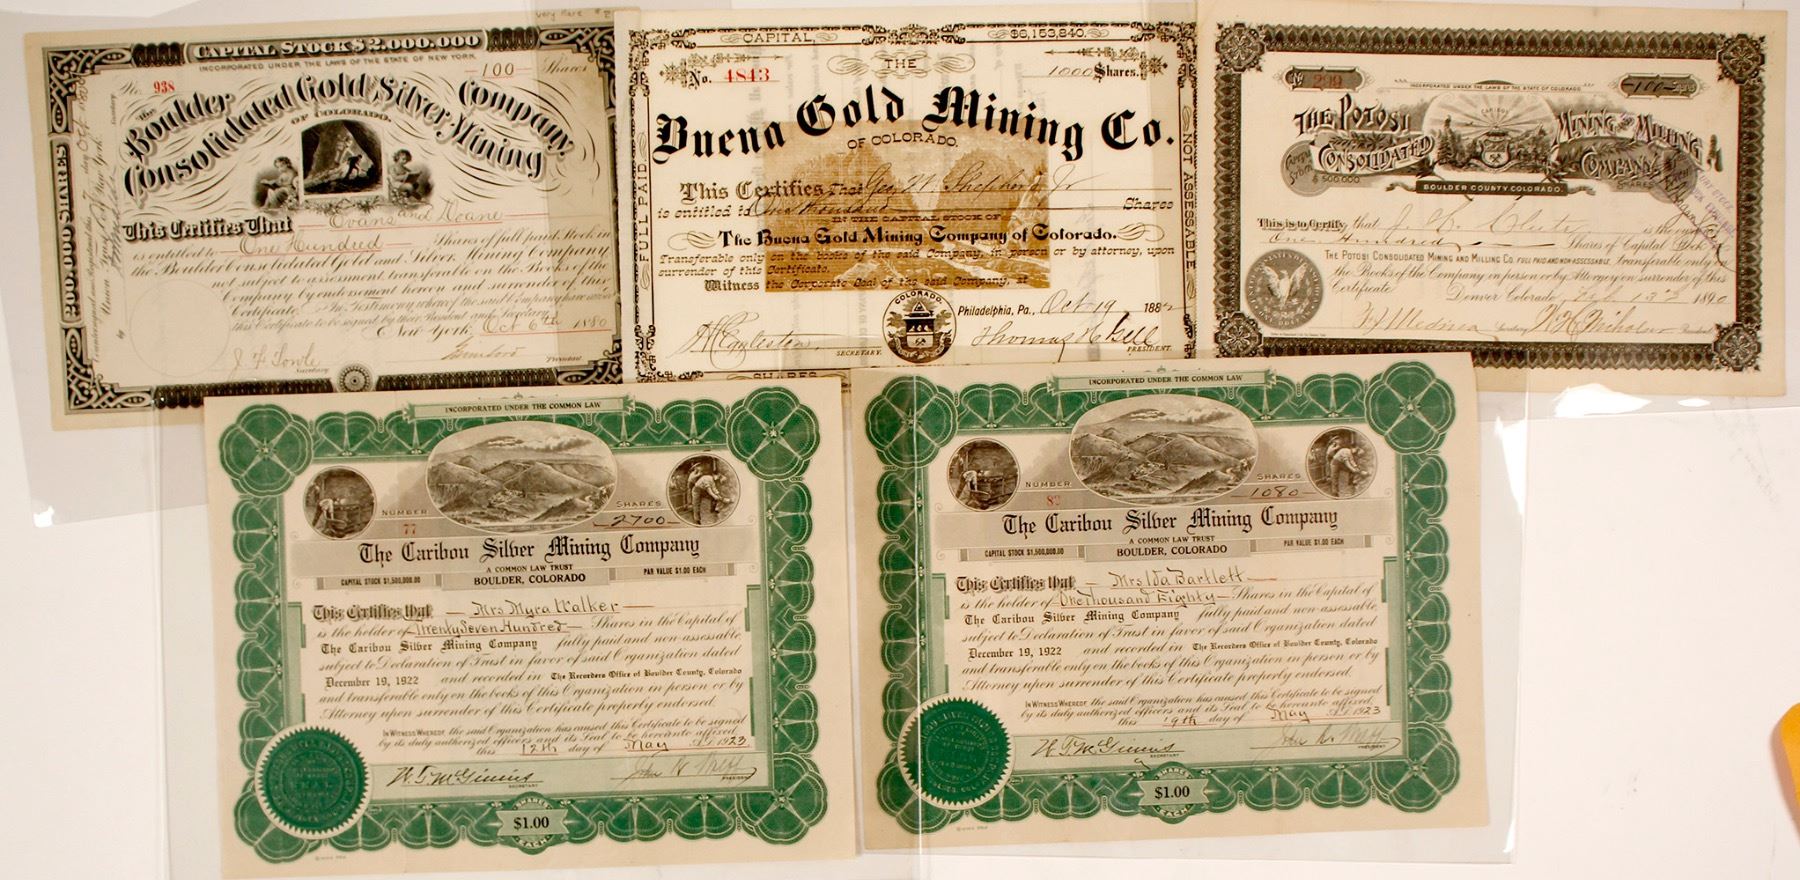 Very Rare
CAPITAL STOCK $2,000,000
INCORPORATED UNDER THE LAWS OF THE STATE OF NEW YORK
No. 938
100 Shares
The Boulder Consolidated Gold and Silver Mining Company,
OF COLORADO.
200,000 SHARES
This Certifies That Evans and Doane
is entitled to One Hundred Shares of full paid Stock in
the Boulder Consolidated Gold and Silver Mining Company
not subject to assessment, transferable on the Books of the
Company by endorsement hereon and surrender of this
Certificate. In Testimony whereof the said Company have caused
this Certificate to be signed by their President and Secretary.
New York, Oct 6th 1880
J F Towle
Secretary
President
CAPITAL, $6,153,840.
No. 4843
THE
1000 Shares.
Buena Gold Mining Co.
OF COLORADO.
FULL PAID.
NOT ASSESSABLE.
This Certifies That Geo. W. Shepherd Jr
is entitled to One thousand Shares
IN THE CAPITAL STOCK OF
The Buena Gold Mining Company of Colorado.
Transferable only on the books of the said Company, in person or by attorney, upon
surrender of this Certificate.
Witness the Corporate Seal of the said Company, at
COLORADO.
Philadelphia, Pa., Oct 19 188
Eggleston
SECRETARY.
Thomas H Gill
PRESIDENT.
SHARES
No 299
INCORPORATED UNDER THE LAWS OF THE STATE OF COLORADO
100
THE POTOSI CONSOLIDATED
CARIBOU
MINING AND MILLING COMPANY
$500,000.
SHARES
BOULDER COUNTY, COLORADO.
This is to Certify that
is the owner of
One Hundred Shares of Capital Stock of
THE POTOSI CONSOLIDATED MINING AND MILLING CO. FULL PAID AND NON-ASSESSABLE. Transferable only on
the Books of the Company in person or by Attorney on surrender of this
Certificate
Denver Colorado, Feb. 13th 1890
Medina Secretary
W H Nicholson President
INCORPORATED UNDER THE COMMON LAW
NUMBER
77
SHARES
2700
The Caribou Silver Mining Company
A COMMON LAW TRUST
CAPITAL STOCK $1,500,000.00
BOULDER, COLORADO
PAR VALUE $1.00 EACH
This Certifies that Mrs Myra Walker
is the holder of Twenty Seven Hundred Shares in the Capital of
The Caribou Silver Mining Company fully paid and non-assessable
subject to Declaration of Trust in favor of said Organization dated
December 19, 1922 and recorded in The Recorders Office of Boulder County, Colorado
and transferable only on the books of this Organization in person or by
Attorney upon surrender of this Certificate properly endorsed.
IN WITNESS WHEREOF, the said Organization has caused this Certificate to be signed
by its duly authorized officers and its Seal to be hereunto affixed
this 12th day of May A.D. 1923
W. T. McGinnis
SECRETARY
John R. Wolff
PRESIDENT
SHARES
$1.00
EACH
INCORPORATED UNDER THE COMMON LAW
NUMBER
SHARES
1080
The Caribou Silver Mining Company
A COMMON LAW TRUST
CAPITAL STOCK $1,500,000.00
BOULDER, COLORADO
PAR VALUE $1.00 EACH
This Certifies that Mrs Ida Bartlett
is the holder of One Thousand Eighty Shares in the Capital of
The Caribou Silver Mining Company fully paid and non-assessable
subject to Declaration of Trust in favor of said Organization dated
December 19, 1922 and recorded in The Recorders Office of Boulder County, Colorado
and transferable only on the books of this Organization in person or by
Attorney upon surrender of this Certificate properly endorsed.
IN WITNESS WHEREOF, the said Organization has caused this Certificate to be signed
by its duly authorized officers and its Seal to be hereunto affixed
this 19th day of May A.D. 1923
W. T. McGinnis
SECRETARY
John R. Wolff
PRESIDENT
SHARES
$1.00
EACH